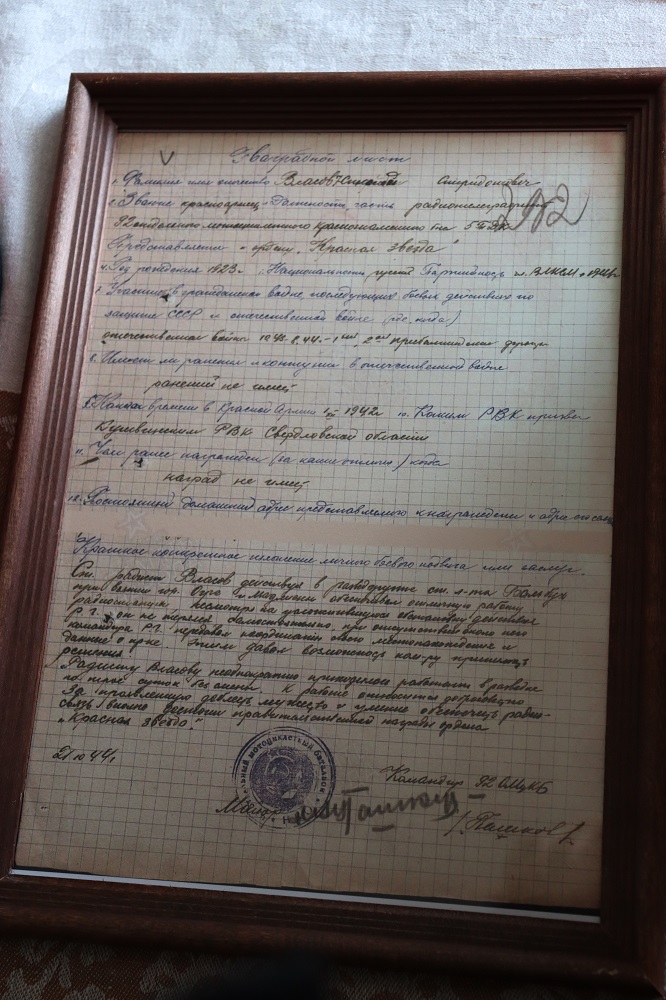 Наградной лист
1. Фамилия имя отчество Власов Спиридонович
2. Звание красноармеец Должность, часть радиотелеграфист
92 отдельного мотоциклетного Краснознаменного б-на 5
Представляется к ордену "Красная звезда"
4. Год рождения 1923 г. Национальность русский Партийность чл. ВЛКСМ с
Участие в гражданской войне, последующих боевых действиях по
защите СССР и отечественной войне (где, когда)
отечественная война
8. Имеет ли ранения и контузии в отечественной войне
ранений не имеет
9. С какого времени в Красной Армии 1942 г. 10. Каким РВК призван
Кушвинским РВК Свердловской области
11. Чем ранее награжден (за какие отличия) когда
наград не имеет
12. Постоянный домашний адрес представляемого к награждению и адрес его семьи
Краткое конкретное изложение личного боевого подвига или заслуг.
Ст. радист Власов действуя в разведгруппе ст. л-та
при взятии гор. обеспечивал отличную работу
радиостанции. Несмотря на усложнившуюся обстановку действия
Р.Г. он не терялся. Самостоятельно, при отсутствии около него
командира Р.Г. передавал координаты своего местонахождения и
данные о пр-ке. Этим давал возможность ком-ру принимать
решения.
Радисту Власову неоднократно приходилось работать в разведке
по двое суток без смены. К работе относится добросовестно.
За проявленную доблесть, мужество и умение обеспечить радио-
связь вполне достоин правительственной награды ордена
"Красная звезда".
мотоциклетный батальон
Командир 92 ОМцКБ
Майор
/Пашков/